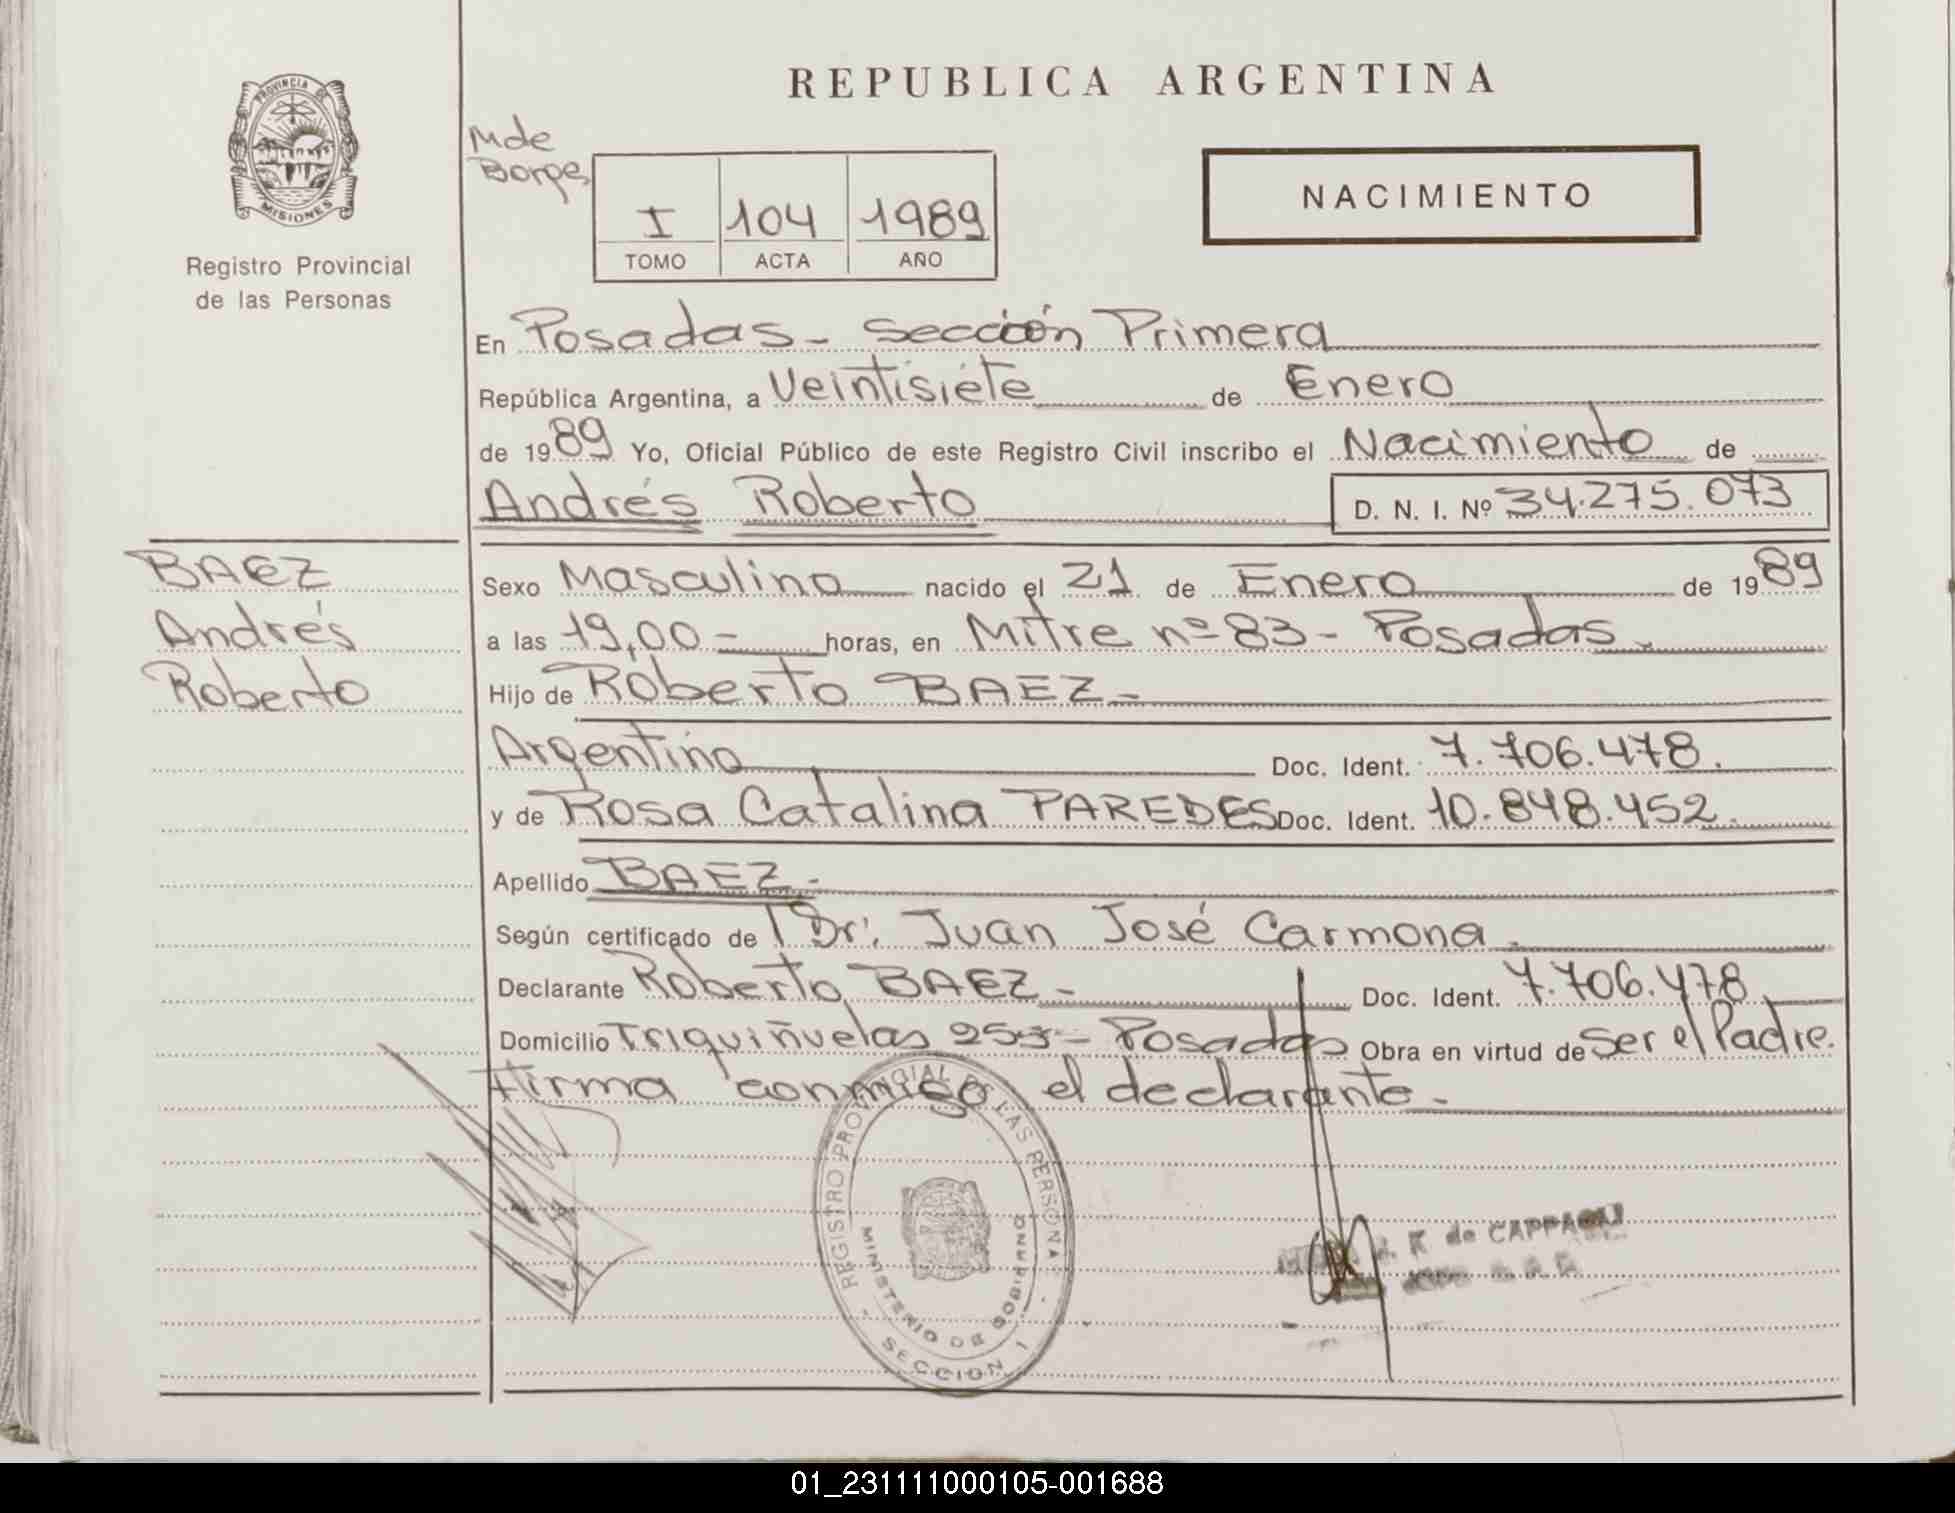 REPUBLICA ARGENTINA
PROVINCIA DE
MISIONES
Registro Provincial
de las Personas
M de
Borges
I 104 1989
TOMO ACTA AÑO
NACIMIENTO
En Posadas - Sección Primera
República Argentina, a Veintisiete de Enero
de 1989 Yo, Oficial Público de este Registro Civil inscribo el Nacimiento de
Andrés Roberto D. N. I. Nº 34.275.073
BAEZ
Andrés
Roberto
Sexo Masculino nacido el 21 de Enero de 1989
a las 19,00- horas, en Mitre nº 83 - Posadas.
Hijo de Roberto BAEZ-
Argentino Doc. Ident. 7.706.478.
y de Rosa Catalina PAREDES Doc. Ident. 10.848.452.
Apellido BAEZ-
Según certificado de Dr. Juan José Carmona.
Declarante Roberto BAEZ- Doc. Ident. 7.706.478
Domicilio Triquiñuelas 253- Posadas Obra en virtud de Ser el Padre.
Firma conmigo el declarante.
REGISTRO PROVINCIAL DE LAS PERSONAS
MINISTERIO DE GOBIERNO
SECCION 1
de CAPPAGLI
01_231111000105-001688